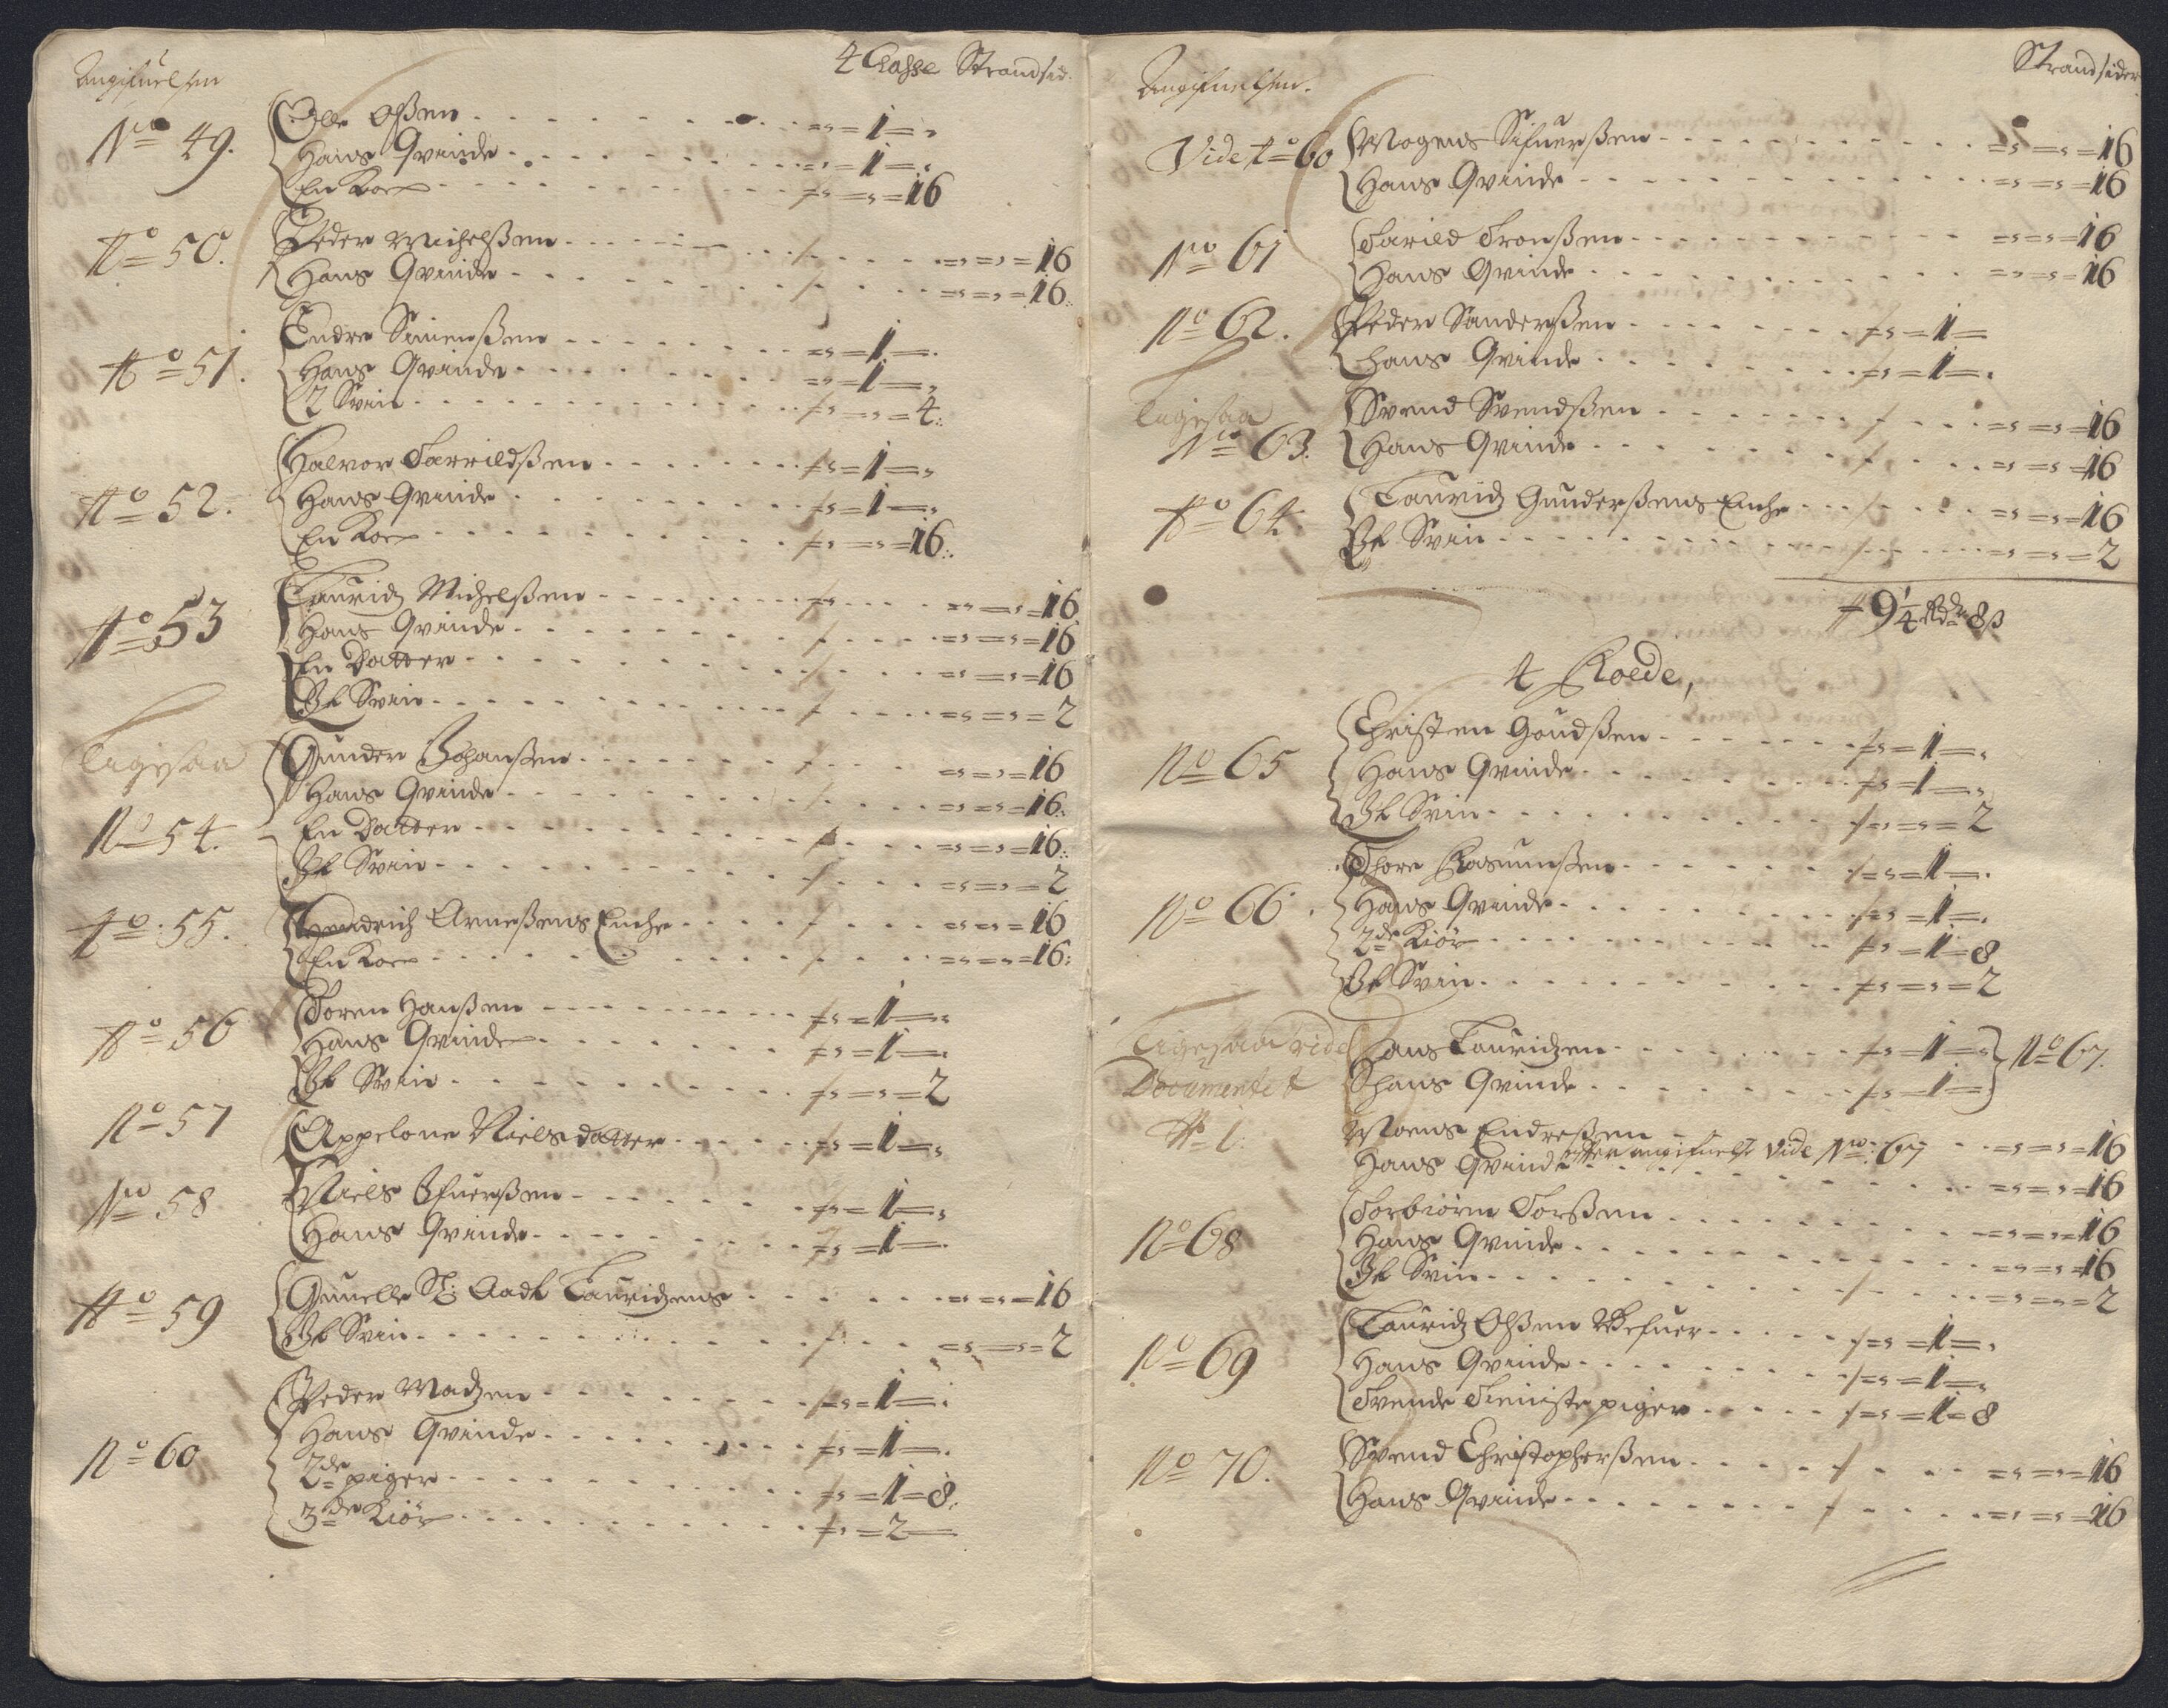 Angifuelsen
4 Classe Strandsid.
No 49.
Olle Olßen - - - = „ = 1 = „
Hans Qvinde - - - = „ = 1 = „
En Koe - - - = „ = „ = 16
No 50.
Peder Michelßen - - - = „ = „ = 16
Hans Qvinde - - - = „ = „ = 16
No 51.
Endre Simenßen - - - = „ = 1 = „
Hans Qvinde - - - = „ = 1 = „
2 Svin - - - = „ = „ = 4
No 52.
Halvor Tarrildßen - - - = „ = 1 = „
Hans Qvinde - - - = „ = 1 = „
En Koe - - - = „ = „ = 16
No 53
Lauridz Michelßen - - - = „ = „ = 16
Hans Qvinde - - - = „ = „ = 16
En Datter - - - = „ = „ = 16
Et Svin - - - = „ = „ = 2
Ligesaa
No 54.
Gunder Johanßen - - - = „ = „ = 16
Hans Qvinde - - - = „ = „ = 16
En Datter - - - = „ = „ = 16
Et Svin - - - = „ = „ = 2
No 55.
Hendrich Arneßens Enche - - - = „ = „ = 16
En Koe - - - = „ = „ = 16
No 56
Soren Hanßen - - - = „ = 1 = „
Hans Qvinde - - - = „ = 1 = „
Et Svin - - - = „ = „ = 2
No 57
Appelone Nielsdatter - - - = „ = 1 = „
No 58
Niels Ifuerßen - - - = „ = 1 = „
Hans Qvinde - - - = „ = 1 = „
No 59
Gunelle Sl: Aadt Lauridzens - - - = „ = „ = 16
Et Svin - - - = „ = „ = 2
No 60
Peder Madzen - - - = „ = 1 = „
Hans Qvinde - - - = „ = 1 = „
2de piger - - - = „ = 1 = 8
3de Kiör - - - = „ = 2 =
Angifuelsen.
Strandsider
Vide No 60
Mogens Sifuerßen - - - = „ = „ = 16
Hans Qvinde - - - = „ = „ = 16
No 61
Tarild Tronßen - - - = „ = „ = 16
Hans Qvinde - - - = „ = „ = 16
No 62.
Peder Sanderßen - - - = „ = 1 =
Hans Qvinde - - - = „ = 1 = „
Ligesaa
No 63.
Svend Svendßen - - - = „ = „ = 16
Hans Qvinde - - - = „ = „ = 16
No 64.
Lauridz Gunderßens Enche - - - = „ = „ = 16
Et Svin - - - = „ = „ = 2
9 1/4 Rdr 8 ß
4 Roede,
No 65
Christen Goudßen - - - = „ = 1 = „
Hans Qvinde - - - = „ = 1 = „
Et Svin - - - = „ = „ = 2
No 66.
Thore Rasmußen - - - = „ = 1 = „
Hans Qvinde - - - = „ = 1 = „
2de Kiör - - - = „ = 1 = 8
Et Svin - - - = „ = „ = 2
Ligesaa vide
Documentet
No 1:
Hans Lauridzen - - - = „ = 1 = „
No 67.
Hans Qvinde - - - = „ = 1 = „
Moens Endreßen - - - = „ = „ = 16
efter angifuelse Vide No: 67
Hans Qvinde - - - = „ = „ = 16
No 68
Torbiörn Torßen - - - = „ = „ = 16
Hans Qvinde - - - = „ = „ = 16
Et Svin - - - = „ = „ = 2
No 69
Lauridz Olßen Wefuer - - - = „ = 1 = „
Hans Qvinde - - - = „ = 1 = „
Tvende Tieniste piger - - - = „ = 1 = 8
No 70.
Svend Christopherßen - - - = „ = „ = 16
Hans Qvinde - - - = „ = „ = 16